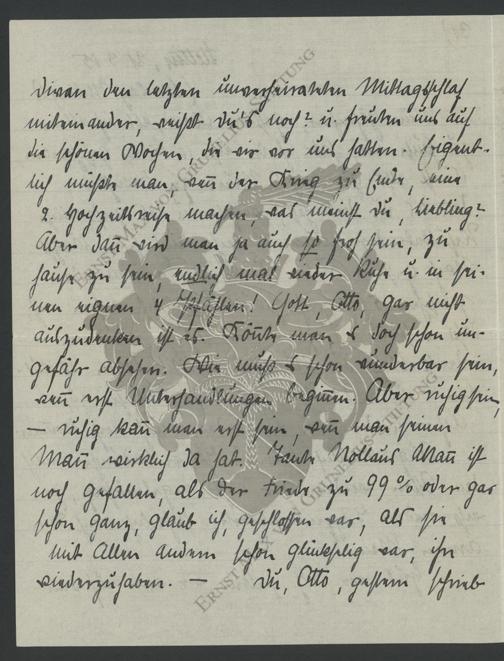 divan den letzten unverheirateten Mittagsschlaf
miteinander, weißt Du's noch? u. freuten uns auf
die schönen Wochen, die wir vor uns hatten. Eigent-
lich müßte man, wenn der Krieg zu Ende, eine
2. Hochzeitsreise machen was meinst Du, Liebling?
Aber dann wird man ja auch so froh sein, zu
hause zu sein, endlich mal wieder Ruhe u. in sei-
nen eignen 4 Pfählen! Gott, Otto, gar nicht
auszudenken ist es. Könnte man es doch schon un-
gefähr absehen. Wie muß es schon wunderbar sein,
wenn erst Unterhandlungen beginnen. Aber ruhig sein,
— ruhig kann man erst sein, wenn man seinen
Mann wirklich da hat. Tante Nollaus Mann ist
noch gefallen, als der Friede zu 99 % oder gar
schon ganz, glaub ich, geschlossen war, als sie
mit Allen andern schon glückselig war, ihn
wiederzuhaben. — Du, Otto, gestern schrieb
ERNST MAX VON GRUNELIUS-STIFTUNG
ERNST MAX VON GRUNELIUS-STIFTUNG